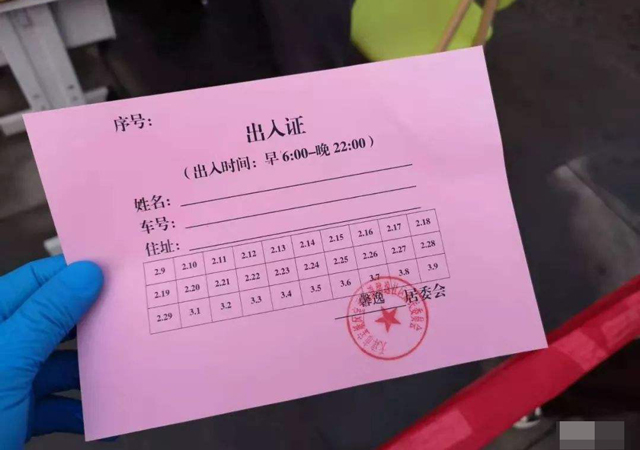 序号：
出入证
（出入时间：早6:00-晚22:00）
姓名：
车号：
住址：
2.9 2.10 2.11 2.12 2.13 2.14 2.15 2.16 2.17 2.18
2.19 2.20 2.21 2.22 2.23 2.24 2.25 2.26 2.27 2.28
2.29 3.1 3.2 3.3 3.4 3.5 3.6 3.7 3.8 3.9
馨逸 居委会